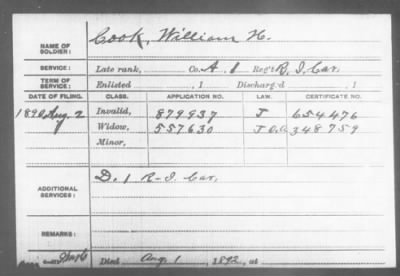 NAME OF SOLDIER: Cook, William H.
SERVICE: Late rank, Co. A, 1 Reg't R. I. Cav.
TERM OF SERVICE: Enlisted , 1 Discharged , 1
DATE OF FILING. CLASS. APPLICATION NO. LAW. CERTIFICATE NO.
1890 Aug. 2 Invalid, 879,937 J 654476
Widow, 557630 348759
Minor,
ADDITIONAL SERVICES: D. 1 R. I. Cav.
REMARKS:
Died Aug. 1, 1892, at